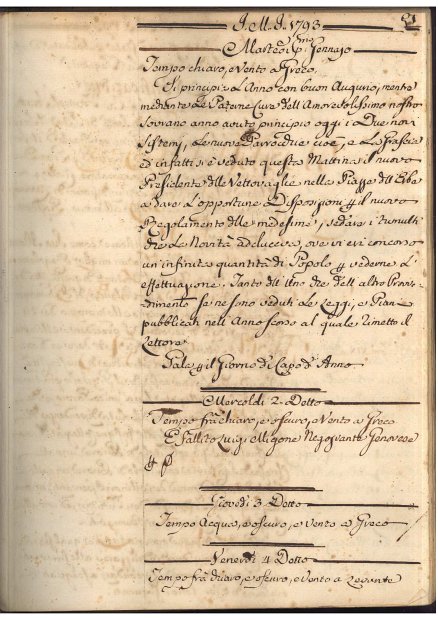 J. M. J. 1793
Martedi pmo Gennajo
Tempo chiaro, e Vento a Greco
Si principia L'Anno con buon Augurio, mentre
mediante Le Paterne Cure dell'Amorosissimo nostro
Sovrano anno avuto principio oggi i Due novi
Sistemi, Le nuove Parrocchie cioè, e La Grascia
ed infatti si è veduto questa Mattina il nuovo
Presidente delle Vettovaglie nella Piazza dell'Erbe
a dare L'opportune Disposizioni p il nuovo
Regolamento delle medesime, e sedare i tumulti
che Le Novità adducevano, ove vi era concorso
un'infinita quantità di Popolo p vederne L'
effettuazione. Tanto dell'uno che dell'altro Provve-
dimento se ne sono veduti Le Leggi, e Piani
pubblicati nell'Anno scorso al quale rimetto il
Lettore
Gala p il Giorno di Capo d'Anno
Mercoldi 2. Detto
Tempo fra chiaro, e oscuro, e Vento a Greco
È fallito Luigi Migone Negoziante Genovese
p
Giovedi 3 Detto
Tempo Acqua, e oscuro, e Vento a Greco
Venerdi 4 Detto
Tempo fra chiaro, e oscuro, e Vento a Levante